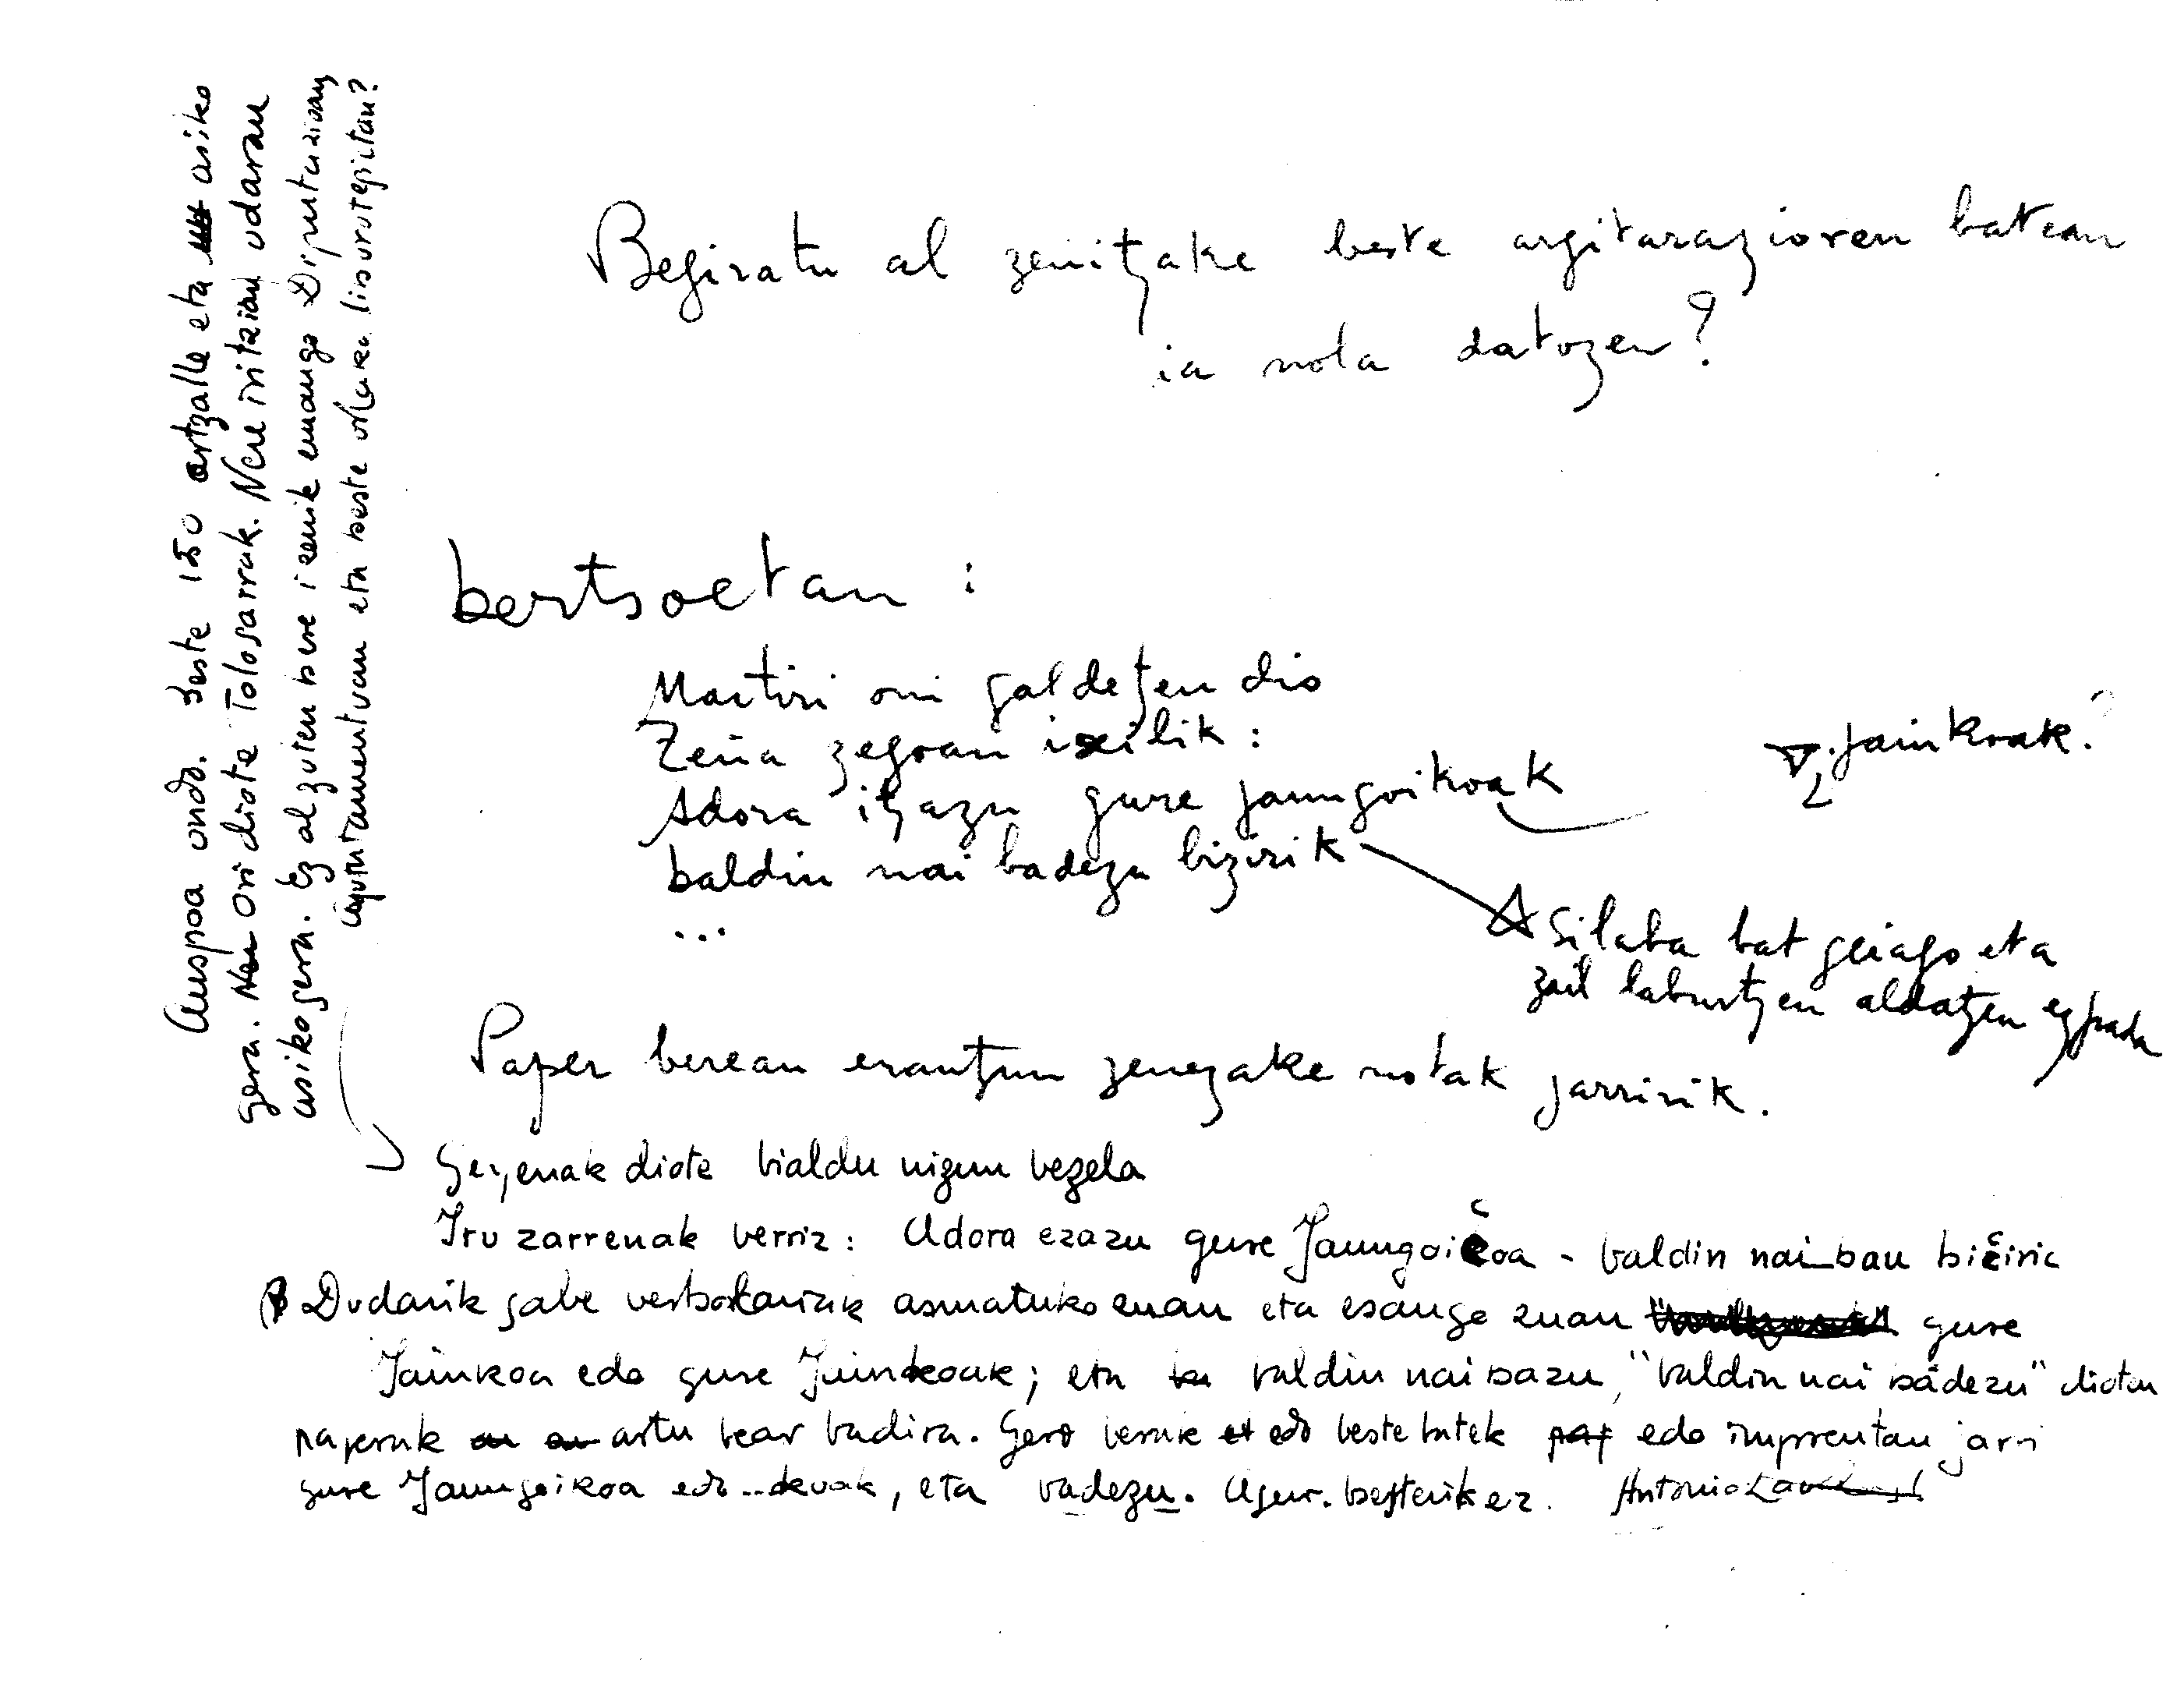 Begiratu al zenitzake beste argitarazioren batean
ia nola datozen?
bertsoetan:
Martiri oni galdetzen dio
Zeña zegoan ixilik:
Adora itzazu gure jaungoikoak
baldin nai badezu bizirik
...
jainkoak?
Silaba bat geiago eta
zail laburtzen aldatzen ezpada
Paper berean erantzun zenezake notak jarririk.
Geyenak diote bialdu nizun bezela
Iru zarrenak berriz: Adora ezazu gure Jaungoicoa - baldin nai bau biciric
Dudarik gabe bertsolariak asmatuko zuan eta esango zuan gure
Jainkoa edo gure Jainkoak; eta baldin nai bazu, "baldin nai badezu" dioten
paperak artu bear badira. Gero berak edo beste batek edo imprentan jarri
gure Jaungoikoa edo ..koak, eta badezu. Agur. besterik ez. Antonio
Auspoa ondo. Beste 150 artzalle eta asiko
gera. Ori diote Tolosarrak. Nere iritzian udaran
asiko gera. Ez al zuten bere izenik emango Diputazioan,
Ayuntamentuan eta beste olako liburutegietan?